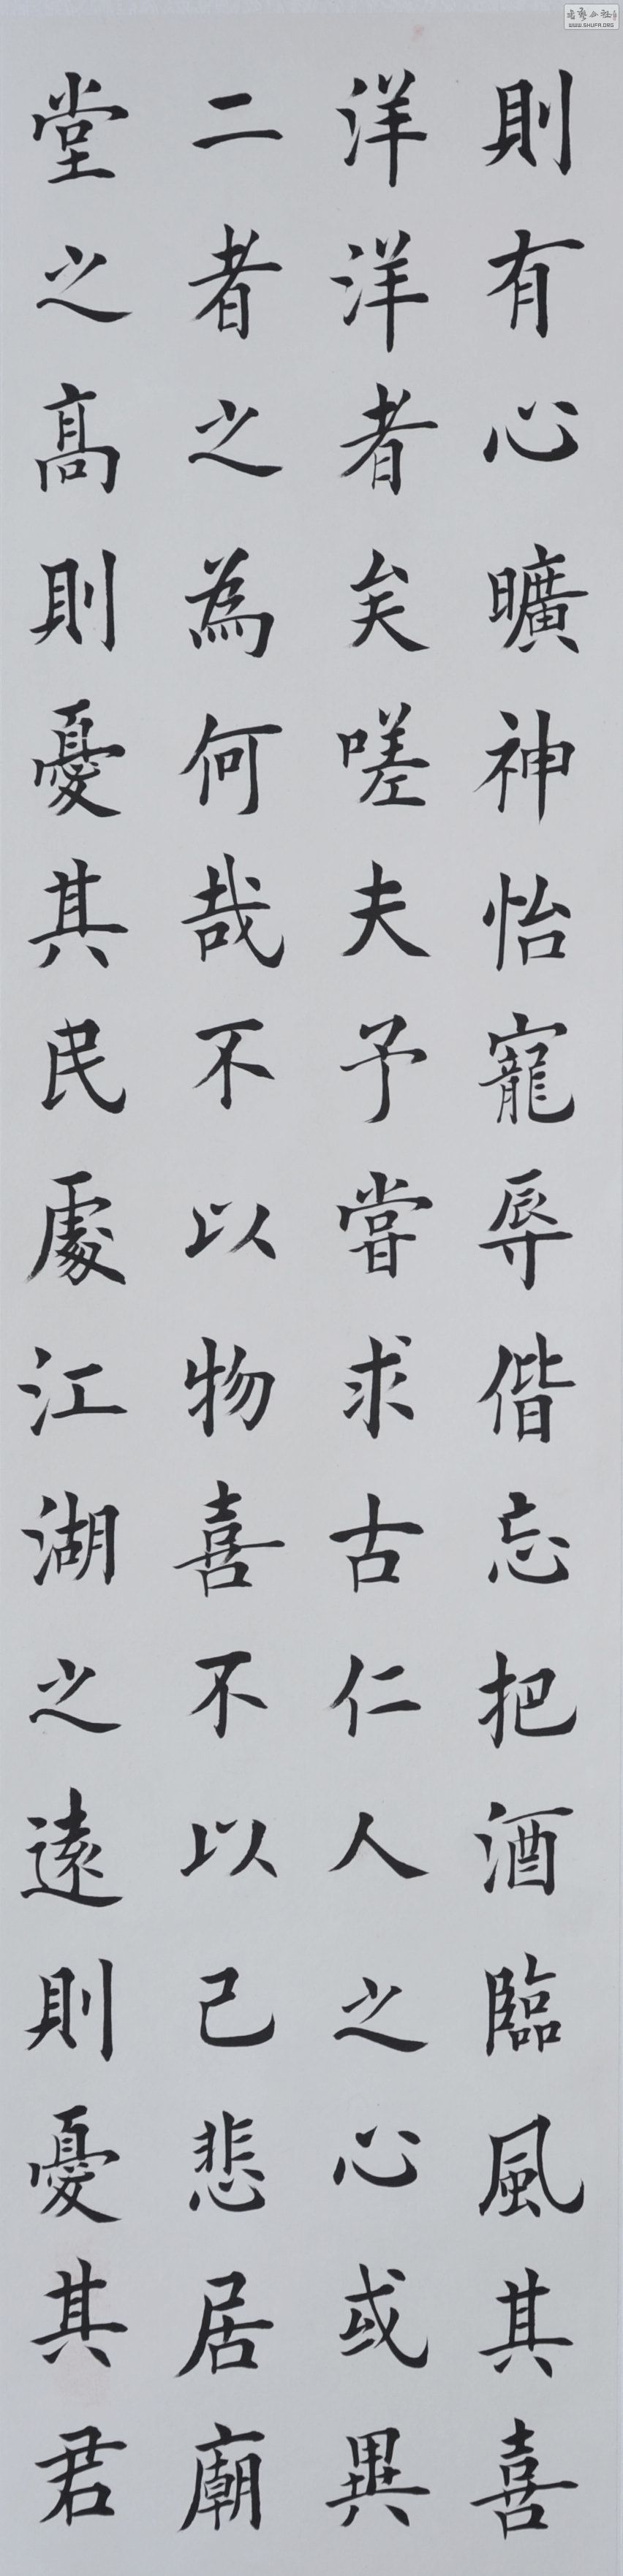 則有心曠神怡寵辱偕忘把酒臨風其喜
洋洋者矣嗟夫予嘗求古仁人之心或異
二者之為何哉不以物喜不以己悲居廟
堂之高則憂其民處江湖之遠則憂其君
WWW.SHUFA.ORG